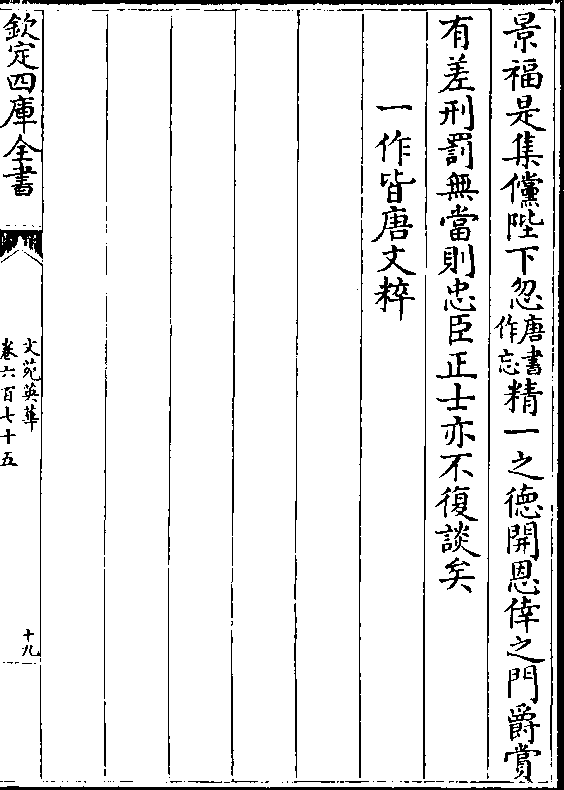 景福是集儻陛下忽唐書作忘精一之徳開恩倖之門爵賞
有差刑罰無當則忠臣正士亦不復談矣
一作皆唐文粹
欽定四庫全書
文苑英華
卷六百七十五
十九